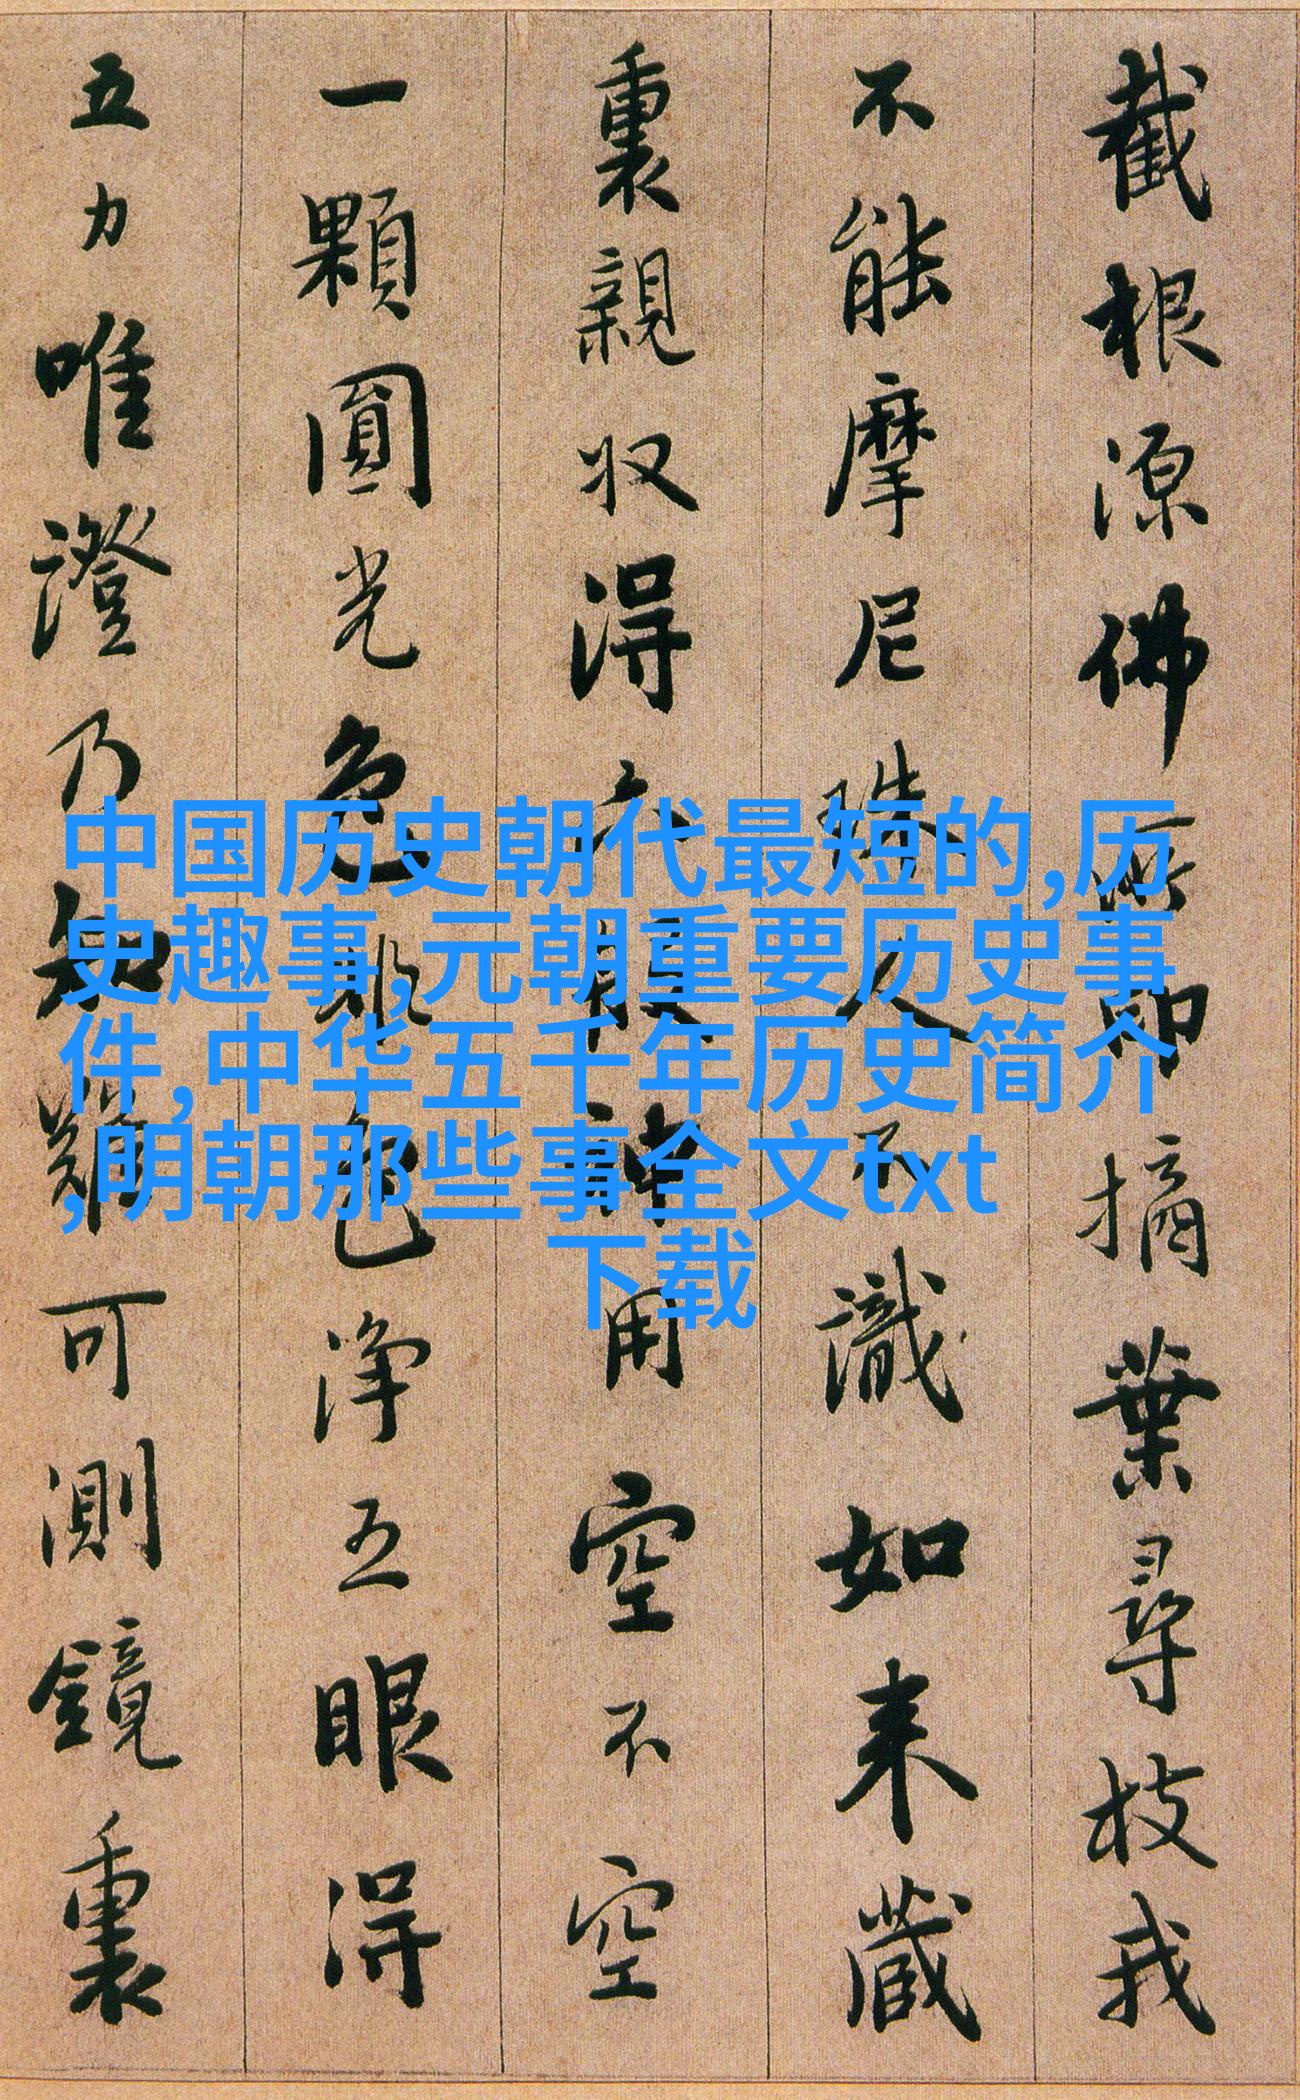 截根源佛所印摘葉尋枝我
不能摩尼珠人不識如来藏
裏親収得六般神用空不空
一顆圓光色非色淨五眼得
五力唯證乃知難可測鏡裏
中国历史朝代最短的,历
史趣事,元朝重要历史事
件,中华五千年历史简介
,明朝那些事全文txt
下载